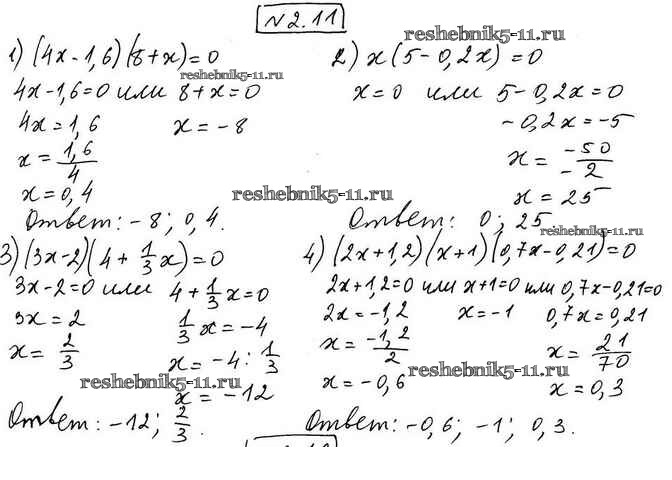 № 2.11
reshebnik5-11.ru
1) (4x-1,6)(8+x)=0
reshebnik5-11.ru
4x-1,6=0 или 8+x=0
4x=1,6 x=-8
x=1,6/4
x=0,4
Ответ: -8; 0,4.
2) x(5-0,2x)=0
x=0 или 5-0,2x=0
-0,2x=-5
x=-50/-2
x=25
reshebnik5-11.ru
Ответ: 0; 25
reshebnik5-11.ru
3) (3x-2)(4+1/3x)=0
3x-2=0 или 4+1/3x=0
3x=2 1/3x=-4
x=2/3 x=-4:1/3
reshebnik5-11.ru
x=-12
Ответ: -12; 2/3.
4) (2x+1,2)(x+1)(0,7x-0,21)=0
2x+1,2=0 или x+1=0 или 0,7x-0,21=0
2x=-1,2 x=-1 0,7x=0,21
x=-1,2/2 x=21/70
reshebnik5-11.ru
x=-0,6 x=0,3
Ответ: -0,6; -1; 0,3.